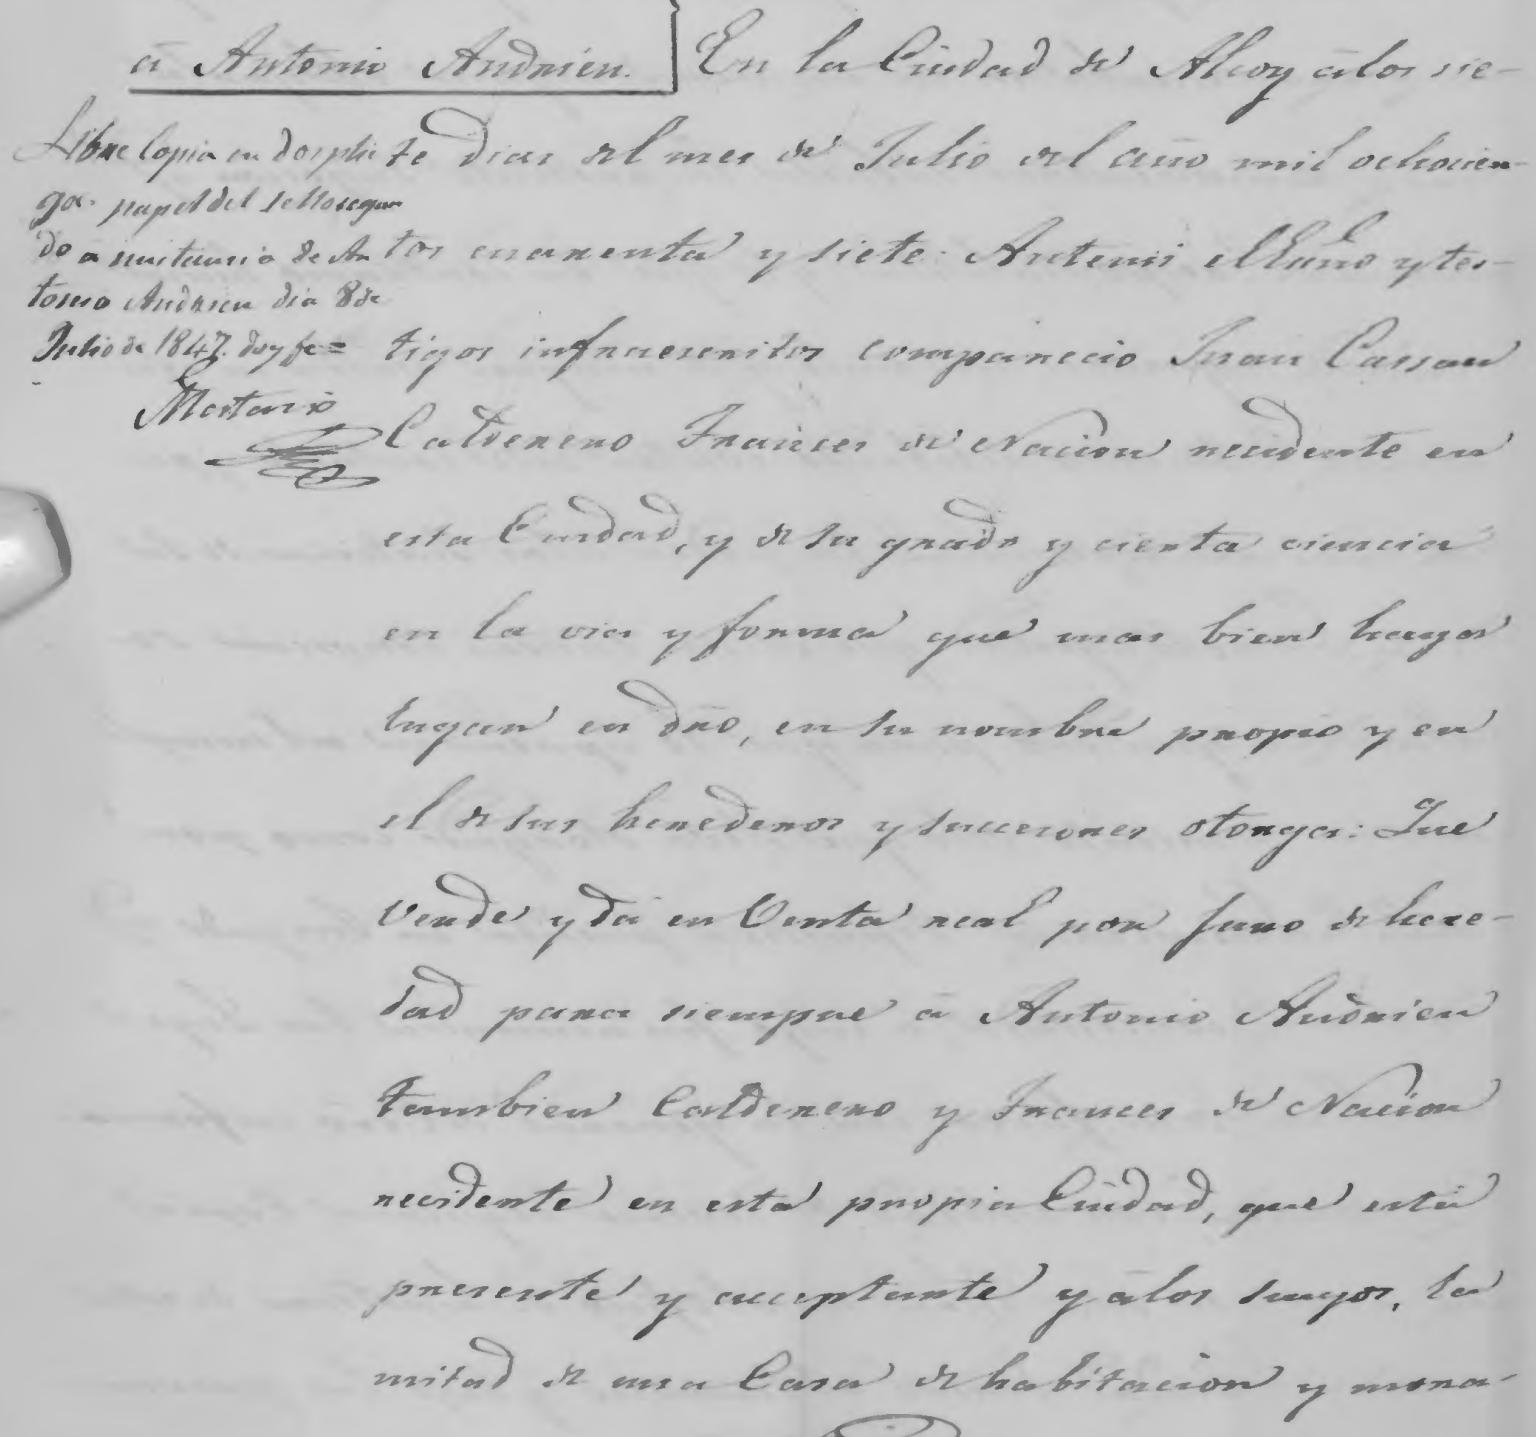 á Antonio Andrieu.
Libre copia en dos plie
gos papel del sello segun
do a instancia de An
tonio Andrieu dia 8 de
Julio de 1847. doy fe=
En la Ciudad de Alcoy á los sie-
te dias del mes de Julio del año mil ochocien-
tos cuarenta y siete: Antemi el Esño y tes-
tigos infraescritos comparecio Juan Cassau
Calderero Frances de Nacion recidente en
esta Ciudad, y de su grado y cierta ciencia
en la via y forma que mas bien haya
lugar en dro, en su nombre propio y en
el de sus herederos y succesores otorga: Que
Vende y dá en Venta real por juro de here-
dad para siempre á Antonio Andrieu
tambien Calderero y Frances de Nacion
recidente en esta propia Ciudad, que está
presente y acceptante y á los suyos, la
mitad de una Casa de habitacion y mora-